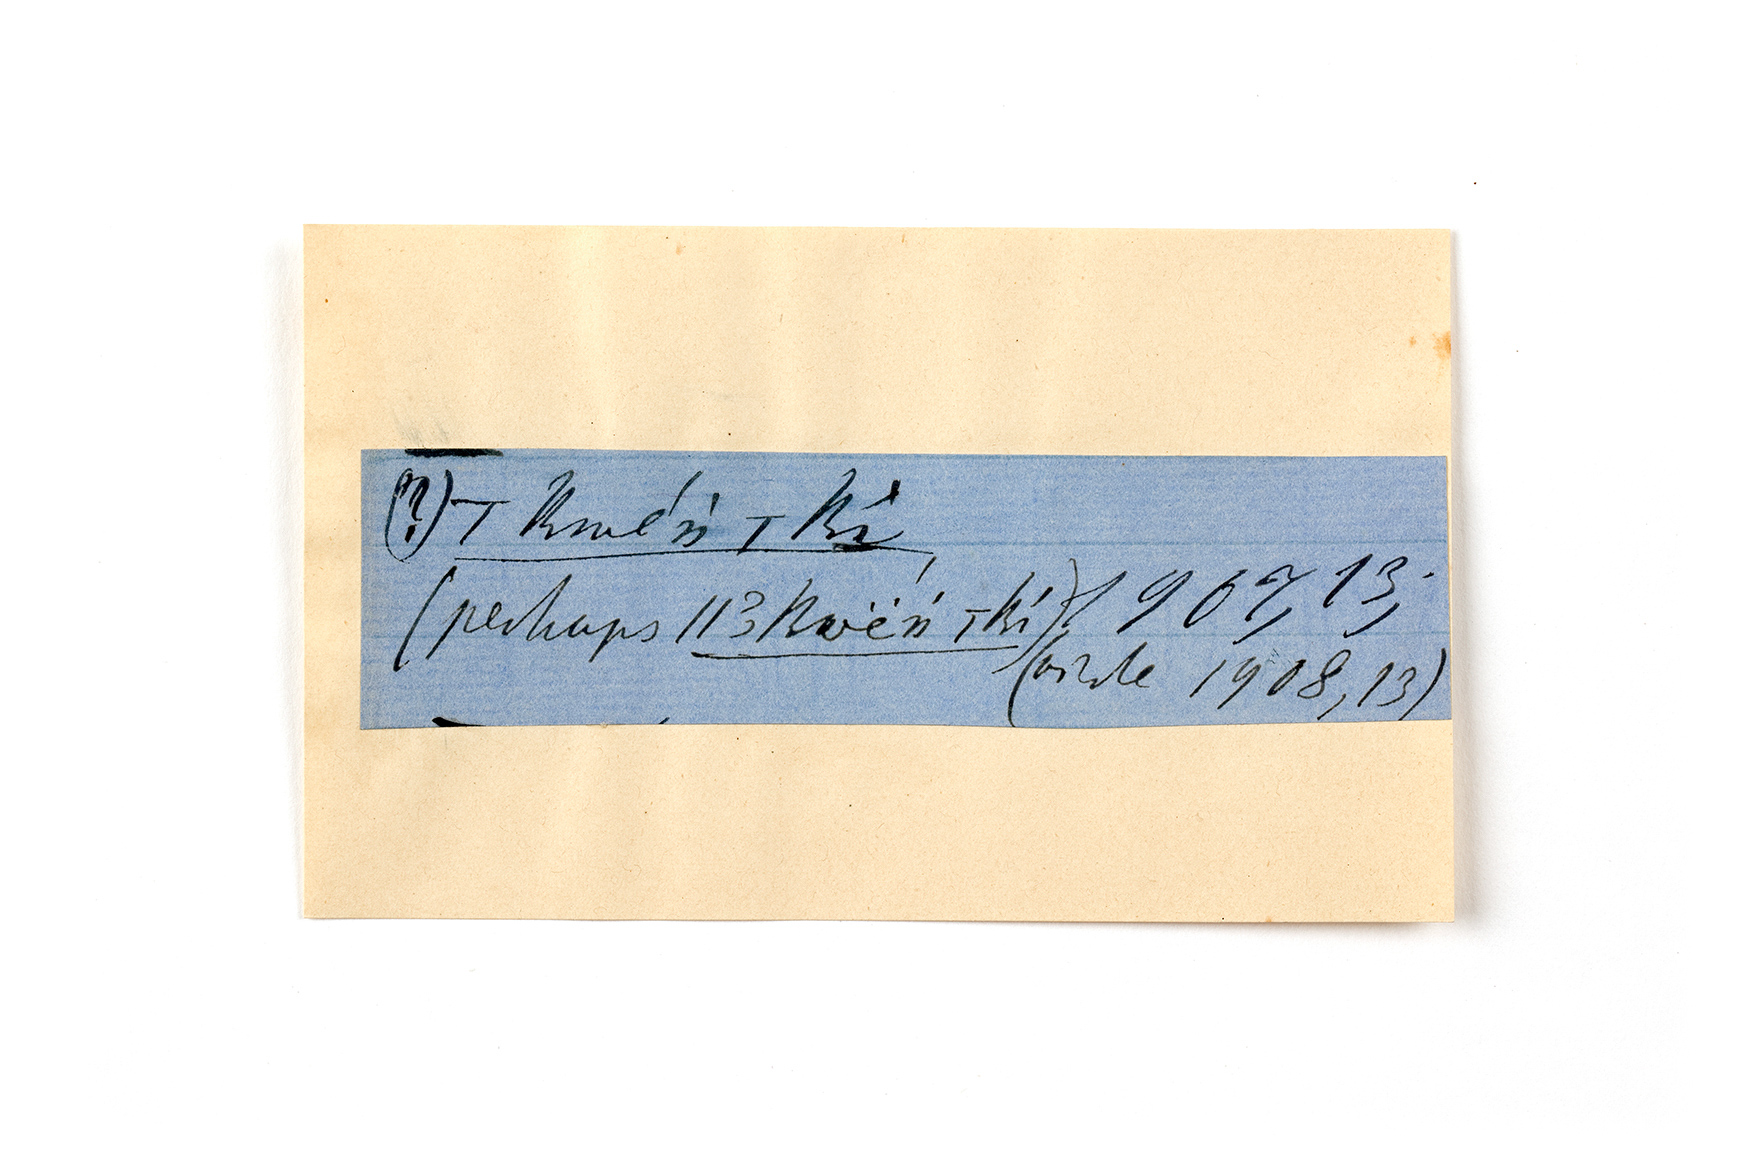 (?) T Kwéń T Kí
(perhaps 113 Kwëń T Kí) 1907, 13,
(vide 1908, 13)